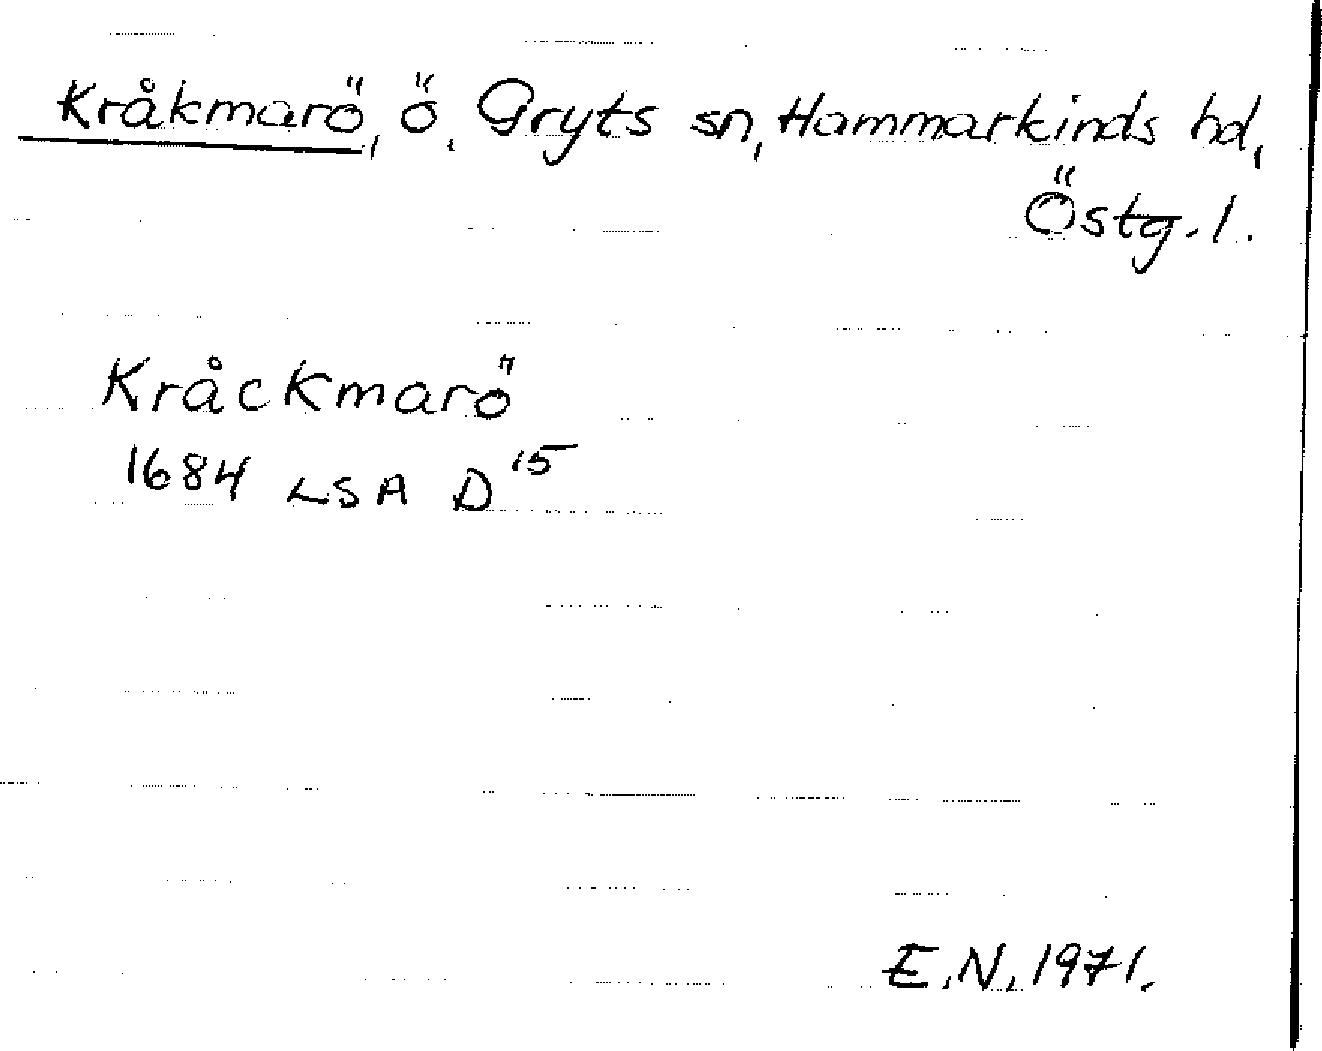 Kråkmarö, ö, Gryts sn, Hammarkinds hd,
Östg. l.
Kråckmarö
1684 LSA D 15
E.N. 1971.